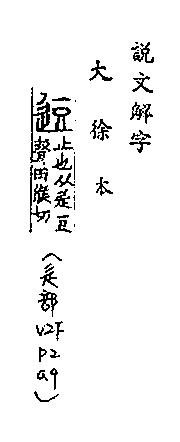 說文解字
大徐本
逗 止也从辵豆
聲田候切
（辵部V2F P2 a9）